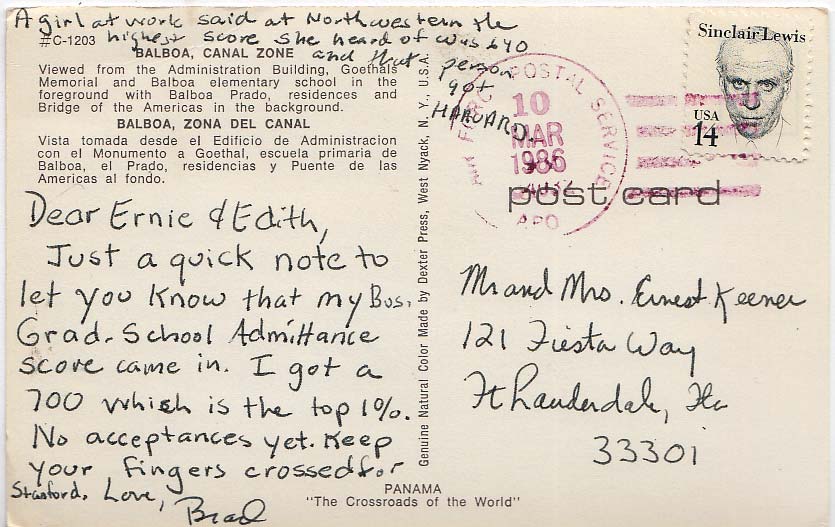 A girl at work said at Northwestern the
highest score she heard of was 640
and that person
got
HARVARD.
#C-1203
BALBOA, CANAL ZONE
Viewed from the Administration Building, Goethals
Memorial and Balboa elementary school in the
foreground with Balboa Prado, residences and
Bridge of the Americas in the background.
BALBOA, ZONA DEL CANAL
Vista tomada desde el Edificio de Administracion
con el Monumento a Goethal, escuela primaria de
Balboa, el Prado, residencias y Puente de las
Americas al fondo.
Dear Ernie & Edith,
Just a quick note to
let you know that my Bus.
Grad. School Admittance
score came in. I got a
700 which is the top 1%.
No acceptances yet. Keep
your fingers crossed for
Stanford. Love,
Brad
PANAMA
"The Crossroads of the World"
Genuine Natural Color Made by Dexter Press, West Nyack, N. Y., U.S.A.
POSTAL SERVICE
10
MAR
1986
APO
post card
Sinclair Lewis
USA
14
Mr and Mrs. Ernest Keener
121 Fiesta Way
Ft Lauderdale, Fla
33301